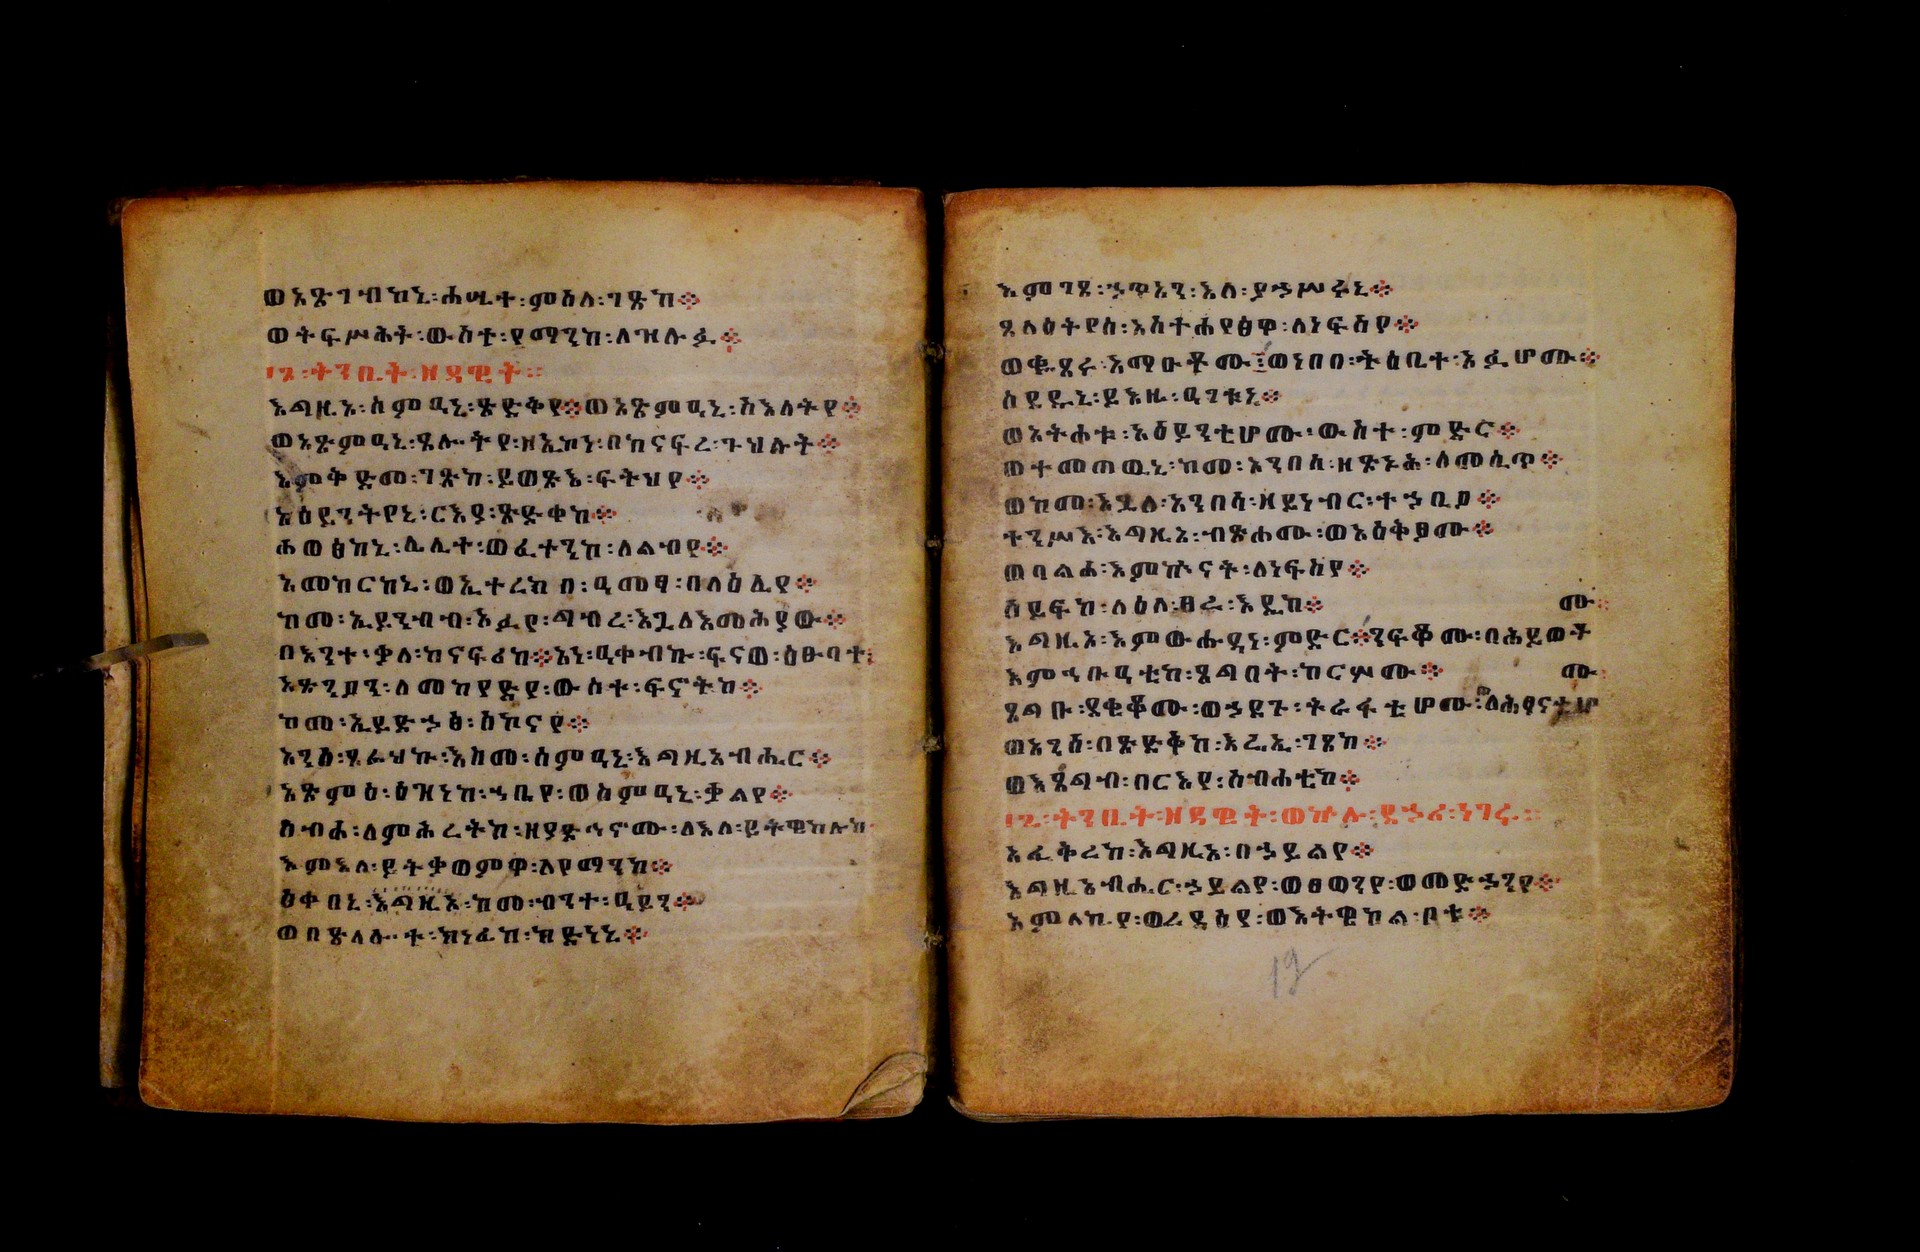 ወአጽገብከኒ፡ሐሤተ፡ምስለ፡ገጽከ፨
ወትፍሥሕት፡ውስተ፡የማንከ፡ለዝሉፉ፨
፲፮፡ትንቢት፡ዘዳዊት፡፡
እግዚኦ፡ስምዓኒ፡ጽድቅየ፨ወአጽምዓኒ፡ስእለትየ፨
ወአጽምዓኒ፡ጸሎትየ፡ዘኢኮነ፡በከናፍረ፡ጕህሉት፨
እምቅድመ፡ገጽከ፡ይወጽእ፡ፍትህየ፨
አዕይንትየኒ፡ርእያ፡ጽድቀከ፨
ሐወፅከኒ፡ሌሊተ፡ወፈተንከ፡ለልብየ፨
አመከርከኒ፡ወኢተረክበ፡ዓመፃ፡በላዕሌየ፨
ከመ፡ኢይንብብ፡አፉየ፡ግብረ፡እጓለእመሕያው፨
በእንተ፡ቃለ፡ከናፍሪከ፨አነ፡ዓቀብኩ፡ፍናወ፡ዕፁባተ፡
አጽንዖን፡ለመከየድየ፡ውስተ፡ፍኖትከ፨
ከመ፡ኢይድኃፅ፡ሰኰናየ፨
አንሰ፡ጸራህኩ፡እስመ፡ሰምዓኒ፡እግዚአብሔር፨
አጽምዕ፡ዕዝነከ፡ኀቤየ፡ወስምዓኒ፡ቃልየ፨
ሰብሐ፡ለምሕረትከ፡ዘያድኅኖሙ፡ለእለ፡ይትዌከሉከ
እምእለ፡ይትቃወምዋ፡ለየማንከ፨
ዕቀበኒ፡እግዚኦ፡ከመ፡ብንተ፡ዓይን፨
ወበጽላሎተ፡ክነፊከ፡ክድነኒ፨
እምገጸ፡ኃጥኣን፡እለ፡ያኃሥሩኒ፨
ጸላዕትየሰ፡አስተሐየፅዋ፡ለነፍስየ፨
ወቈጸሩ፡አማዑቶሙ፡ወነበበ፡ትዕቢተ፡አፉሆሙ፨
ሰደዱኒ፡ይእዜ፡ዓገቱኒ፨
ወአትሐቱ፡አዕይንቲሆሙ፡ውስተ፡ምድር፨
ወተመጠዉኒ፡ከመ፡አንበሳ፡ዘጽኑሕ፡ለመሲጥ፨
ወከመ፡እጓለ፡አንበሳ፡ዘይነብር፡ተኃቢዖ፨
ተንሥእ፡እግዚኦ፡ብጽሐሙ፡ወአዕቅፆሙ፨
ወባልሐ፡እምኵናት፡ለነፍስየ፨
ሰይፍከ፡ላዕለ፡ፀረ፡እዴከ፨ ሙ፡፡
እግዚኦ፡እምውሑዳነ፡ምድር፨ንፍቆሙ፡በሕይወቶ
እምኅቡዓቲከ፡ጸግበት፡ከርሦሙ፨ ሙ፡
ጸግቡ፡ደቂቆሙ፡ወኃደጉ፡ትራፋቲሆሙ፡ለሕፃናቲሆ
ወአንሰ፡በጽድቅከ፡እሬኢ፡ገጸከ፨
ወእጸግብ፡በርእየ፡ስብሐቲከ፨
፲፯፡ትንቢት፡ዘዳዊት፡ወኵሉ፡ደኃሪ፡ነገሩ፡፡
አፈቅረከ፡እግዚኦ፡በኃይልየ፨
እግዚአብሔር፡ኃይልየ፡ወፀወንየ፡ወመድኃንየ፨
አምላኪየ፡ወረዳእየ፡ወእትዌከል፡ቦቱ፨
19